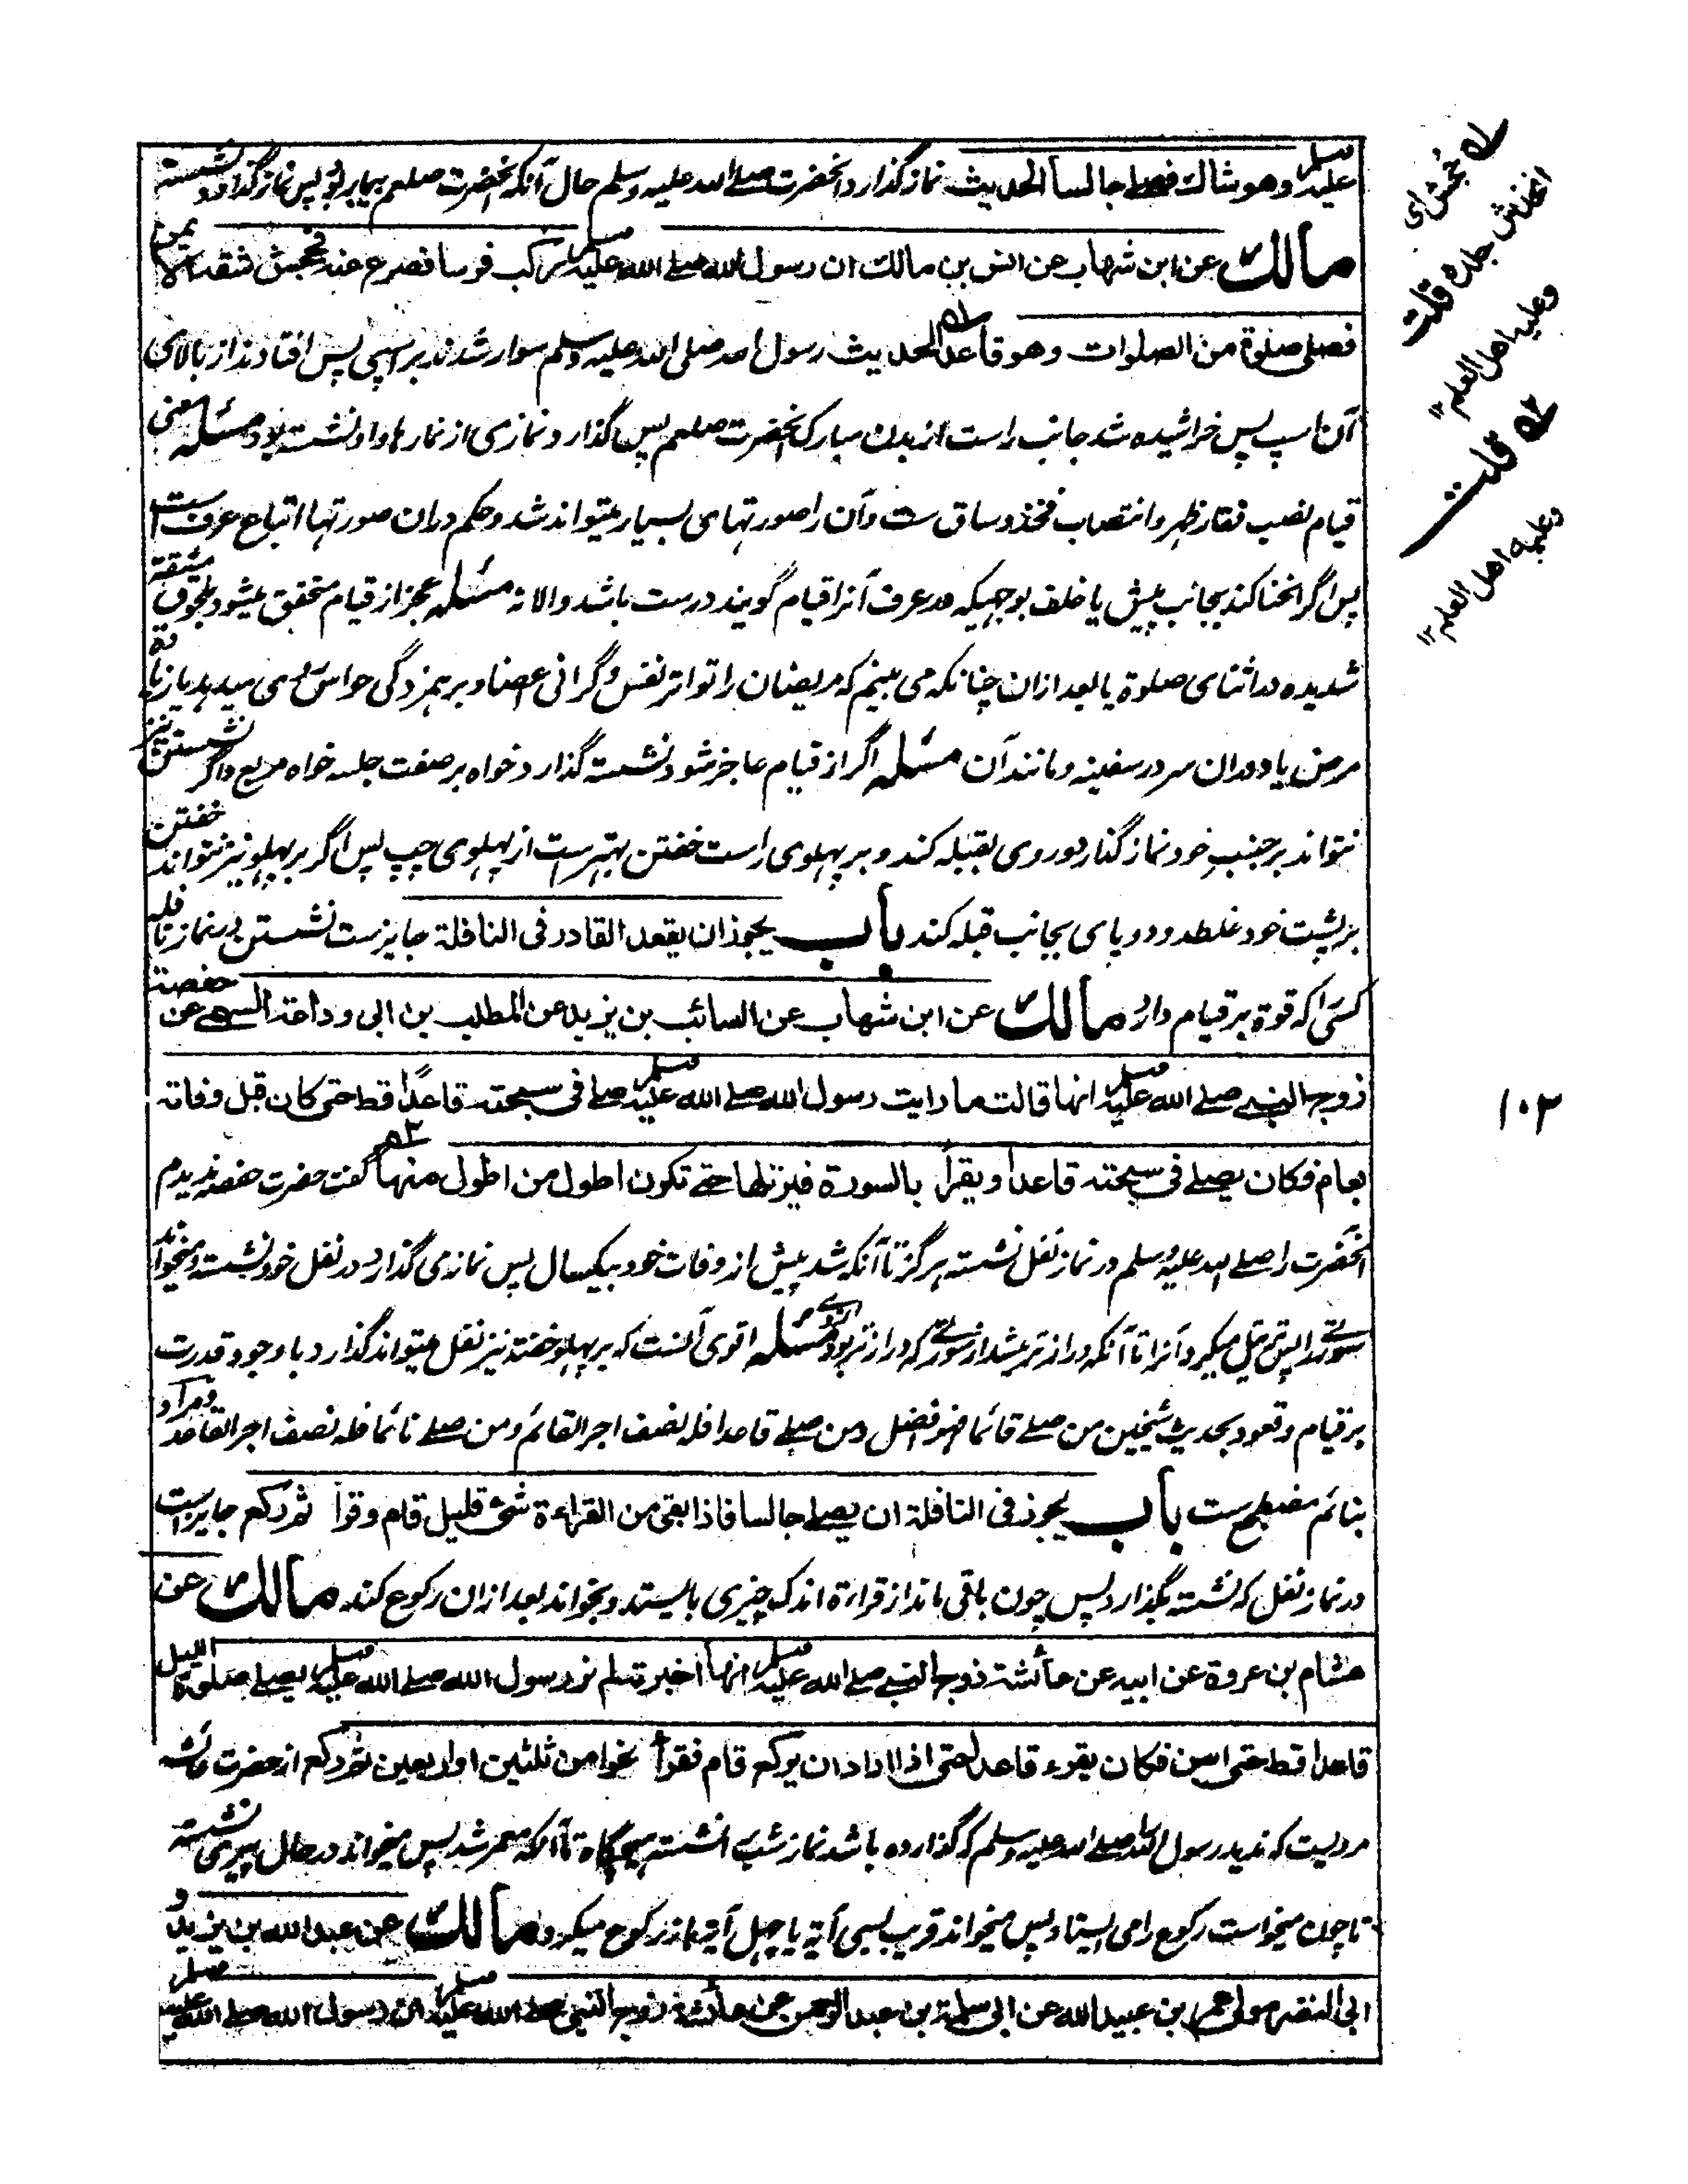 علیه وسلم وهو شاك فصلی جالسا الحدیث نماز گذارد آنحضرت صلے الله علیه وسلم حال آنکه آنحضرت صلعم بیمار بود پس نماز گذارد نشسته
مالك عن ابن شهاب عن انس بن مالك ان رسول الله صلے الله علیه وسلم رکب فرسا فصرع عنه فجحش شقه الایمن
فصلی صلوة من الصلوات وهو قاعد الحدیث رسول الله صلی الله علیه وسلم سوار شدند بر اسپی پس افتادند از بالای
آن اسپ پس خراشیده شد جانب راست از بدن مبارک آنحضرت صلعم پس گذارد نمازی از نمازها و او نشسته بود مسئله معنی
قیام نصب فقار ظهر و انتصاب فخذ و ساق ست و آن را صورتهای بسیار میتواند شد و حکم دران صورتها اتباع عرف ست
پس اگر انحنا کند بجانب پیش یا خلف بوجهیکه در عرف آنرا قیام گویند درست باشد والا نه مسئله عجز از قیام متحقق میشود بلحوق مشقة
شدیده در اثنای صلوة یا بعد ازان چنانکه می بینم که مریضان را تواتر نفس و گرانی اعضا و برهمزدگی حواس روی میدهد یا زیادة
مرض یا دوران سر در سفینه و مانند آن مسئله اگر از قیام عاجز شود نشسته گذارد خواه بر صفت جلسه خواه مربع و اگر نشستن نیز
نتواند بر جنب خود نماز گذارد و روی بقبله کند و بر پهلوی راست خفتن بهتر ست از پهلوی چپ پس اگر بر پهلو نیز نتواند خفتن
بر پشت خود غلطد و دو پای بجانب قبله کند باب یجوز ان یقعد القادر فی النافلة جایز ست نشستن در نماز نافله
کسی را که قوة بر قیام دارد مالك عن ابن شهاب عن السائب بن یزید عن المطلب بن ابی وداعة السهمے عن حفصة
زوج النبی صلے الله علیه وسلم انها قالت ما رایت رسول الله صلے الله علیه وسلم صلے فی سبحته قاعدًا قط حتی کان قبل وفاته
بعام فکان یصلے فی سبحته قاعدا ویقرأ بالسورة فیرتلها حتے تکون اطول من اطول منها گفت حضرت حفصه ندیدم
آنحضرت را صلے الله علیه وسلم در نماز نفل نشسته هرگز تا آنکه شد پیش از وفات خود بیکسال پس نماز می گذارد در نفل خود نشسته و میخواند
سورتے را پس ترتیل میکرد آنرا تا آنکه دراز تر میشد از سورتے که دراز تر بود از وے مسئله اقوی آنست که بر پهلو خفته نیز نفل میتواند گذارد با وجود قدرت
بر قیام و قعود بحدیث شیخین من صلے قائما فهو افضل ومن صلے قاعدا فله نصف اجر القائم ومن صلے نائما فله نصف اجر القاعد ومراد
بنائم مضطجع ست باب یجوز فی النافلة ان یصلے جالسا فاذا بقی من القراءة شیٔ قلیل قام وقرأ ثم رکع جایز است
در نماز نفل که نشسته بگذارد پس چون باقی ماند از قراءة اندک چیزی بایستد و بخواند بعد ازان رکوع کند مالك عن
هشام بن عروة عن ابیه عن عائشة زوج النبی صلے الله علیه وسلم انها اخبرته لم تر رسول الله صلے الله علیه وسلم یصلے صلوة اللیل
قاعدا قط حتی اسن فکان یقرء قاعدا حتی اذا اراد ان یرکع قام فقرأ نحوا من ثلثین او اربعین ثم رکع از حضرت عائشه
مرویست که ندید رسول الله را صلے الله علیه وسلم که گذارده باشد نماز شب را نشسته هیچگاه تا آنکه معمر شد پس میخواند در حال پیری نشسته
تا چون میخواست رکوع را می ایستاد پس میخواند قریب بسی آیة یا چهل آیة باز رکوع میکرد مالك عن عبد الله بن یزید و
ابی النضر مولی عمر بن عبید الله عن ابی سلمة بن عبد الرحمن عن عائشة زوج النبی صلے الله علیه وسلم ان رسول الله صلے الله علیه وسلم
ای
انخدش جلده قلت
وعلیه اهل العلم ۱۲
قلت
وعلیه اهل العلم ۱۲
۱۰۲